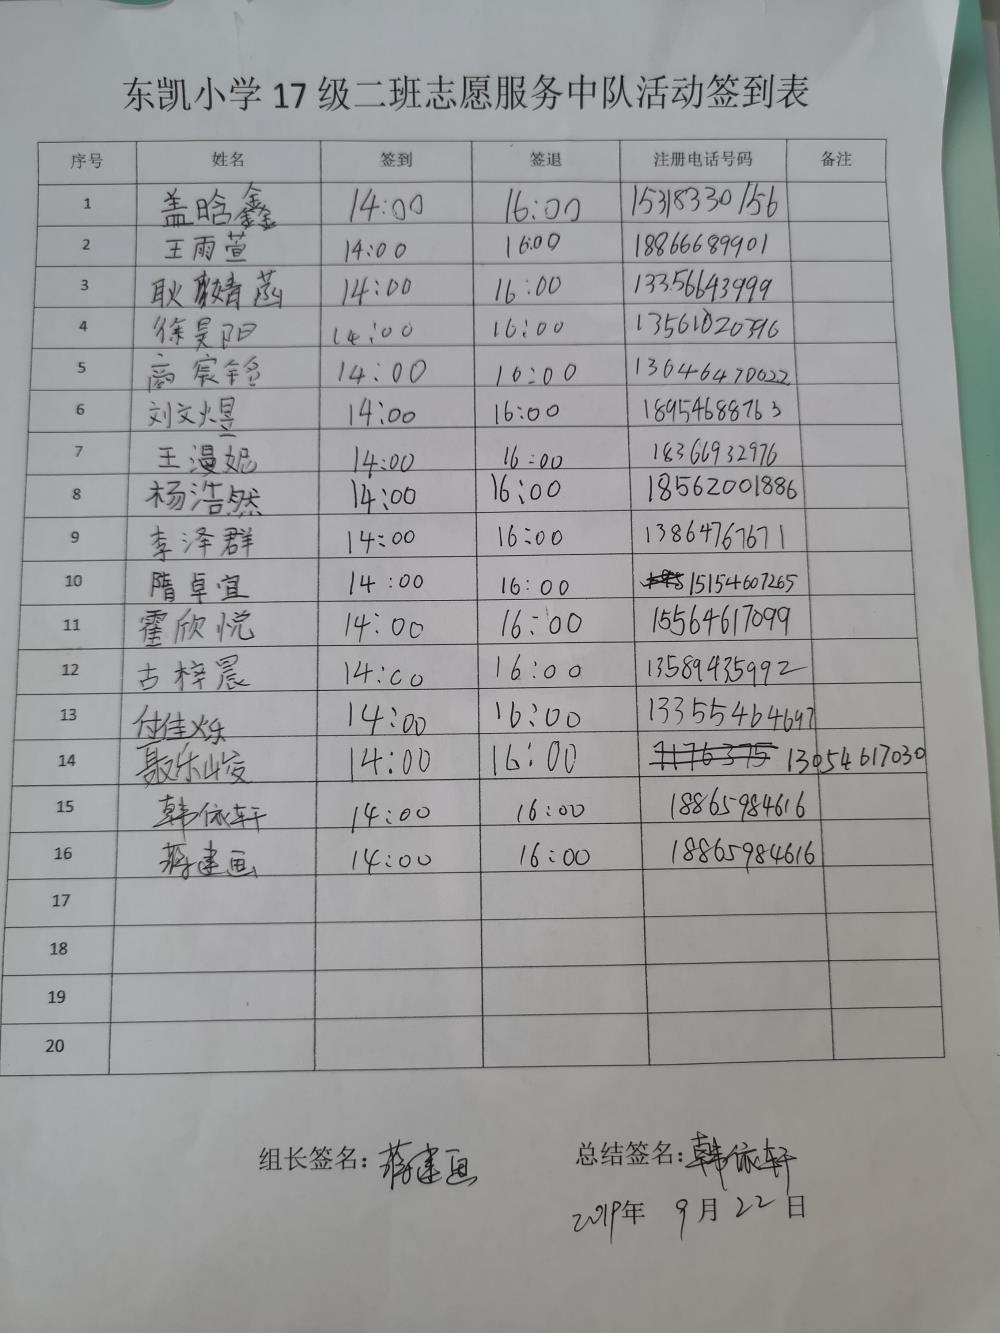 东凯小学17级二班志愿服务中队活动签到表
序号 姓名 签到 签退 注册电话号码 备注
1 盖晗鑫 14:00 16:00 15318330156
2 王雨萱 14:00 16:00 18866689901
3 耿靖菡 14:00 16:00 13356643999
4 徐昊阳 14:00 16:00 13561020396
5 高宸铭 14:00 16:00 13646470022
6 刘文煜 14:00 16:00 18954688763
7 王漫妮 14:00 16:00 18366932976
8 杨浩然 14:00 16:00 18562001886
9 李泽群 14:00 16:00 13864767671
10 隋卓宜 14:00 16:00 15154607265
11 霍欣悦 14:00 16:00 15564617099
12 古梓晨 14:00 16:00 13589435992
13 付佳烁 14:00 16:00 13355464697
14 聂乐峻 14:00 16:00 7176375 13054617030
15 韩依轩 14:00 16:00 18865984616
16 蒋建画 14:00 16:00 18865984616
17
18
19
20
组长签名：蒋建画 总结签名：韩依轩
2019年 9月22日